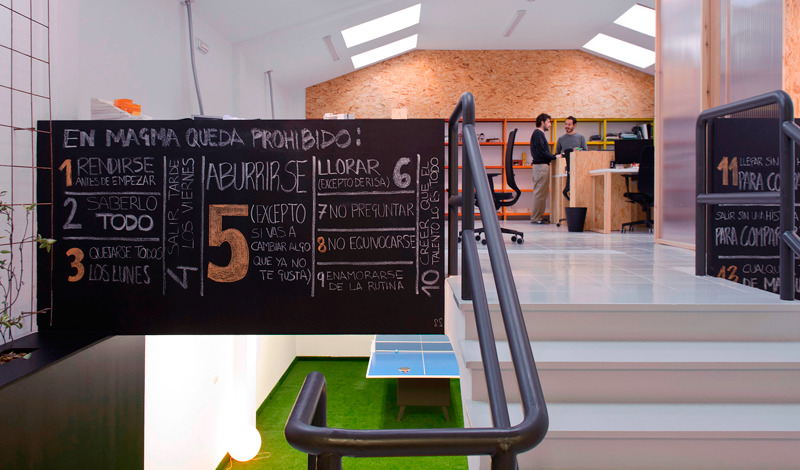 EN MAGMA QUEDA PROHIBIDO:
1 RENDIRSE
ANTES DE EMPEZAR
2 SABERLO
TODO
3 QUEJARSE TODOS
LOS LUNES
4 SALIR TARDE
LOS VIERNES
ABURRIRSE
5 (EXCEPTO
SI VAS A
CAMBIAR ALGO
QUE YA NO
TE GUSTA)
LLORAR 6
(EXCEPTO DE RISA)
7 NO PREGUNTAR
8 NO EQUIVOCARSE
9 ENAMORARSE
DE LA RUTINA
10 CREER QUE EL
TALENTO LO ES TODO
11 LLEGAR SIN
PARA
SALIR SIN UNA
PARA
13
DE